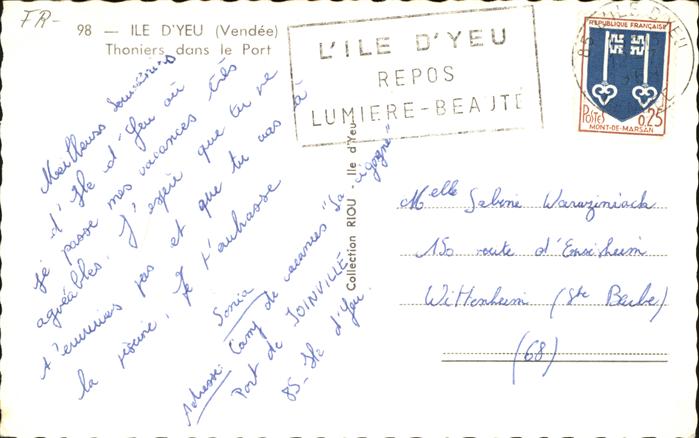 FR-
98 — ILE D'YEU (Vendée)
Thoniers dans le Port
L'ILE D'YEU
REPOS
LUMIERE-BEAUTÉ
REPUBLIQUE FRANÇAISE
POSTES 0,25
MONT-DE-MARSAN
Meilleurs Souvenirs
d'Ile d'Yeu où
je passe mes vacances très
agréables. J'espère que tu ne
t'ennuies pas et que tu vas à
la piscine. Je t'embrasse
Sonia
Adresse: Camp de vacances "La cigogne"
Port de JOINVILLE
85 - Ile d'Yeu.
Collection RIOU - Ile d'Yeu
Melle Sabine Waraziniack
150 route d'Ensisheim
Wittenheim (Ste Barbe)
(68)